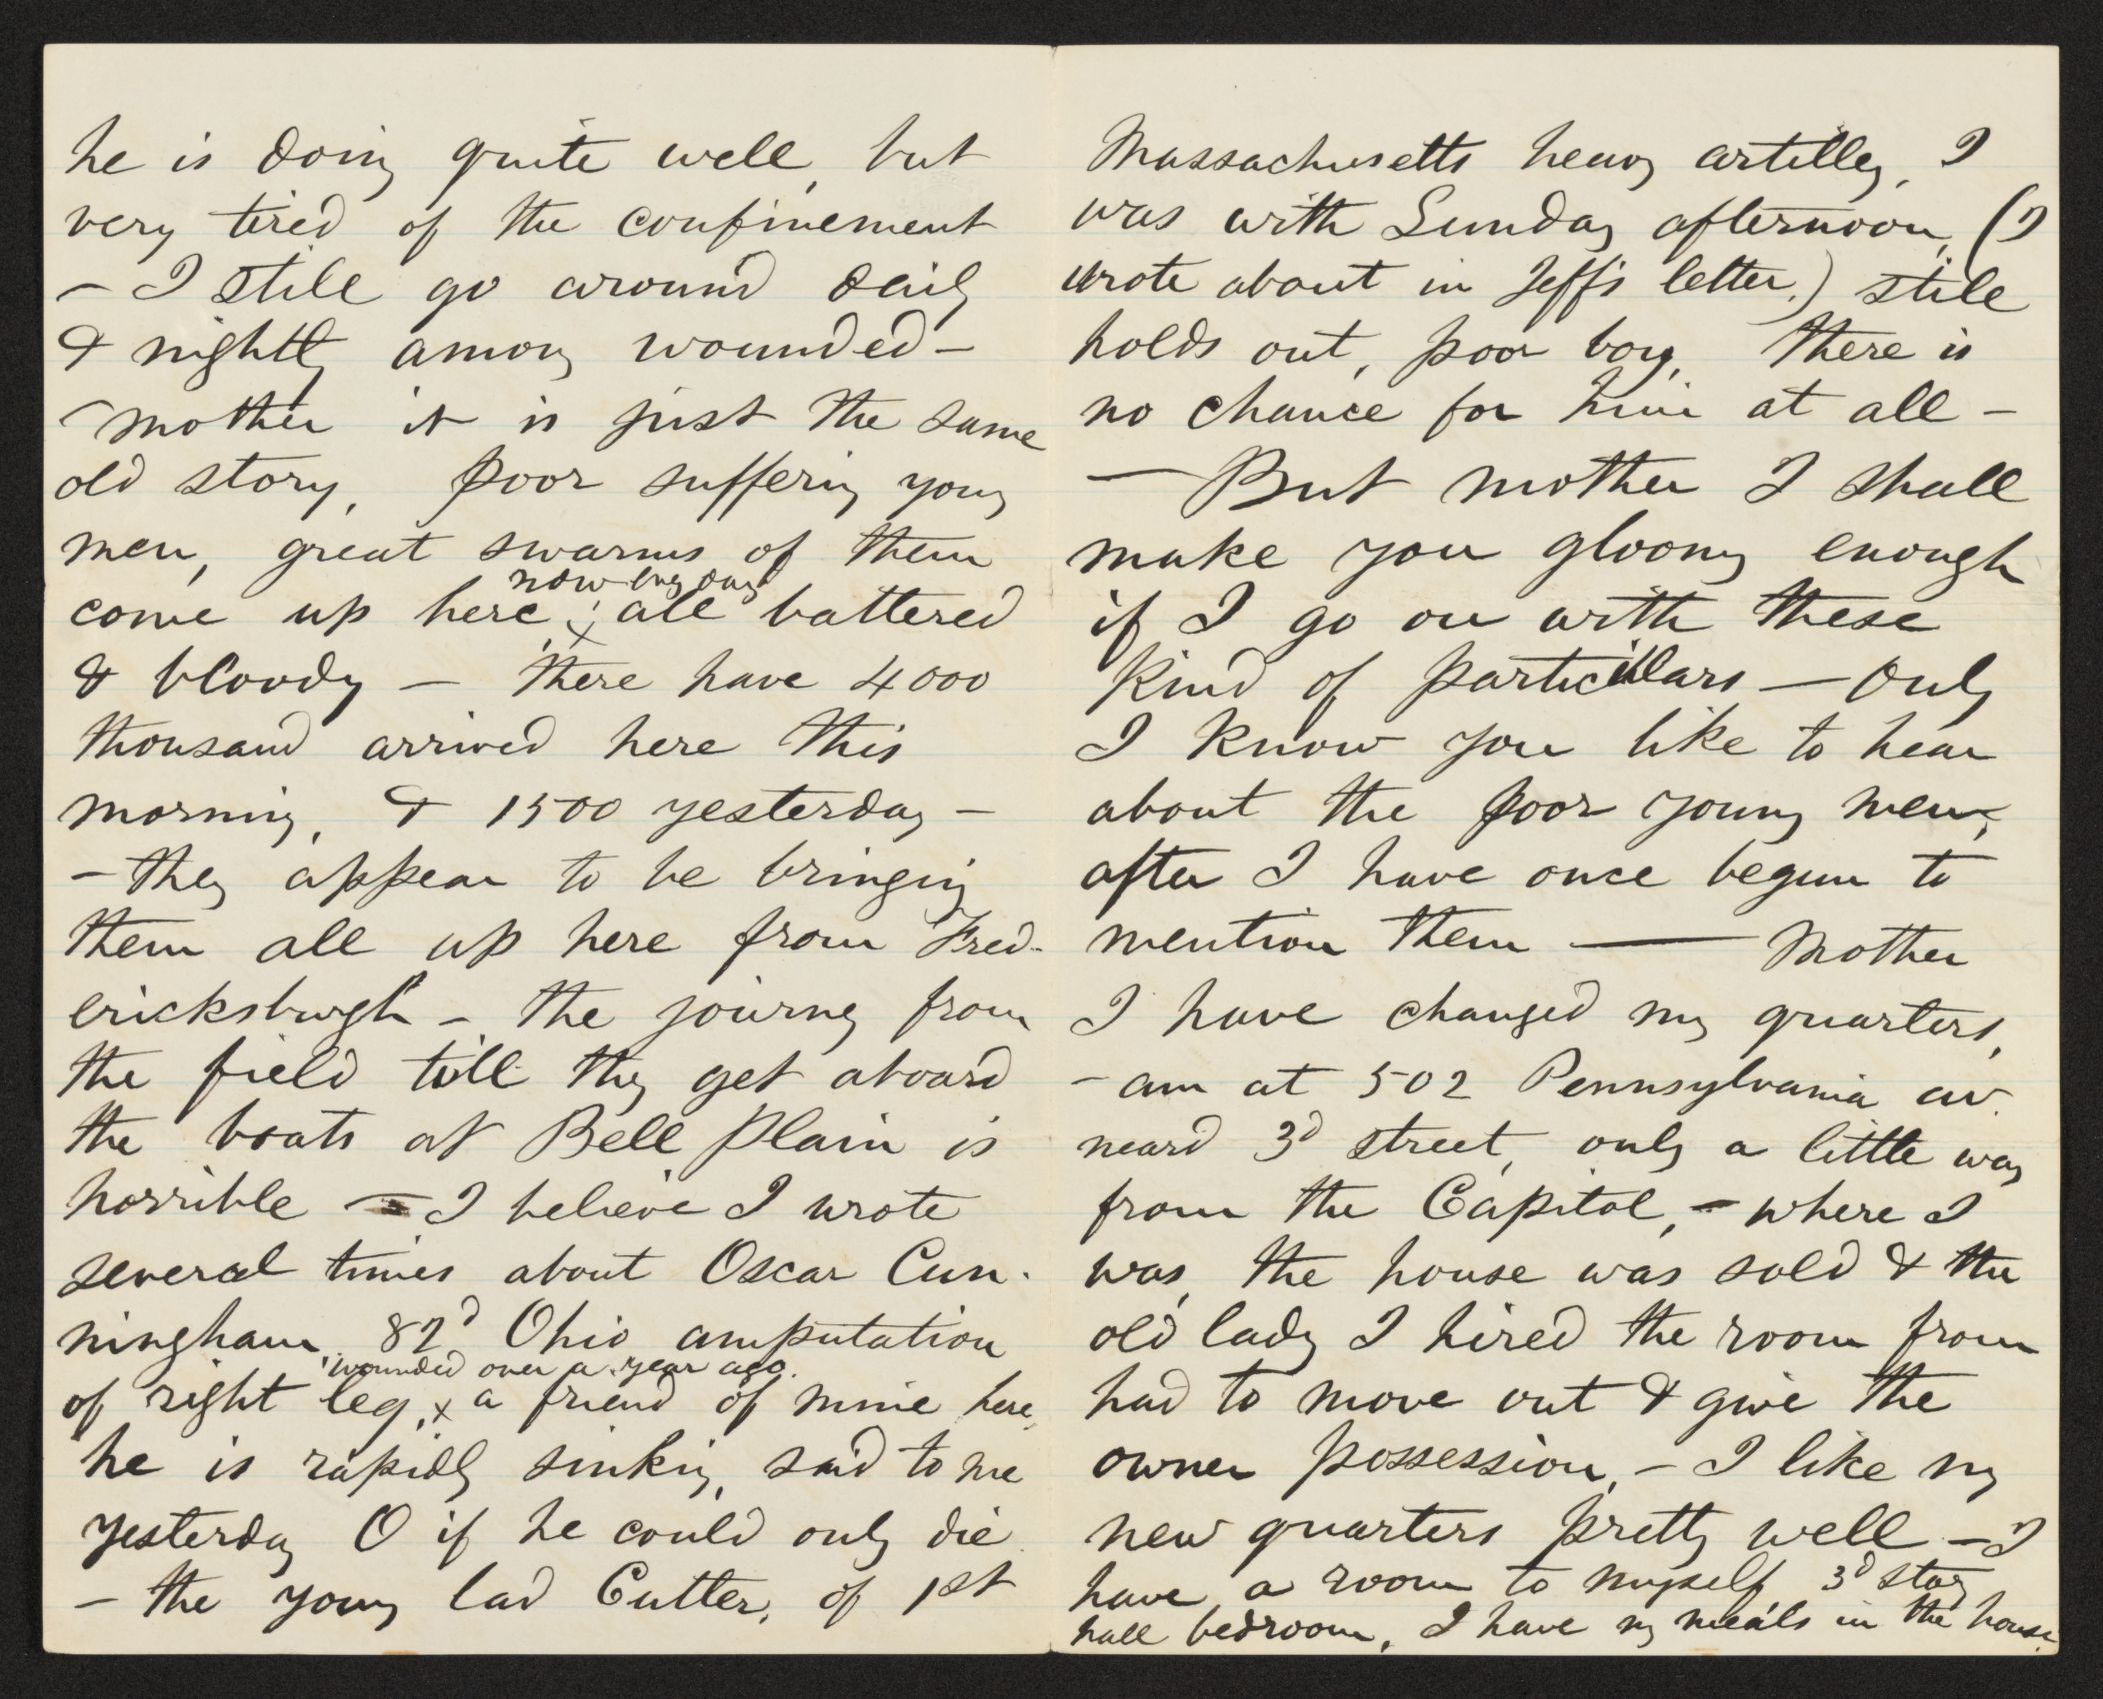 he is doing quite well, but
very tired of the confinement
– I still go around daily
& nightly among wounded –
mother it is just the same
old story, poor suffering young
men, great swarms of them
now every day
come up here, all battered
& bloody – there have 4000
thousand arrived here this
morning, & 1500 yesterday –
– they appear to be bringing
them all up here from Fred-
ericksburgh – the journey from
the field till they get aboard
the boats at Bell Plain is
horrible – I believe I wrote
several times about Oscar Cun-
ningham, 82d Ohio amputation
wounded over a year ago.
of right leg, x a friend of mine here,
he is rapidly sinking, said to me
yesterday O if he could only die
– the young lad Cutter, of 1st
Massachusetts heavy artilley, I
was with Sunday afternoon, (I
wrote about in Jeff's letter,) still
holds out, poor boy, there is
no chance for him at all –
– But mother I shall
make you gloomy enough
if I go on with these
kind of particulars – only
I know you like to hear
about the poor young men,
after I have once begun to
mention them — Mother
I have changed my quarters,
– am at 502 Pennsylvania av.
neard 3d street, only a little way
from the Capitol, – where I
was, the house was sold & the
old lady I hired the room from
had to move out & give the
owner possession, – I like my
new quarters pretty well – I
have a room to myself, 3d story
hall bedroom, I have my meals in the house.